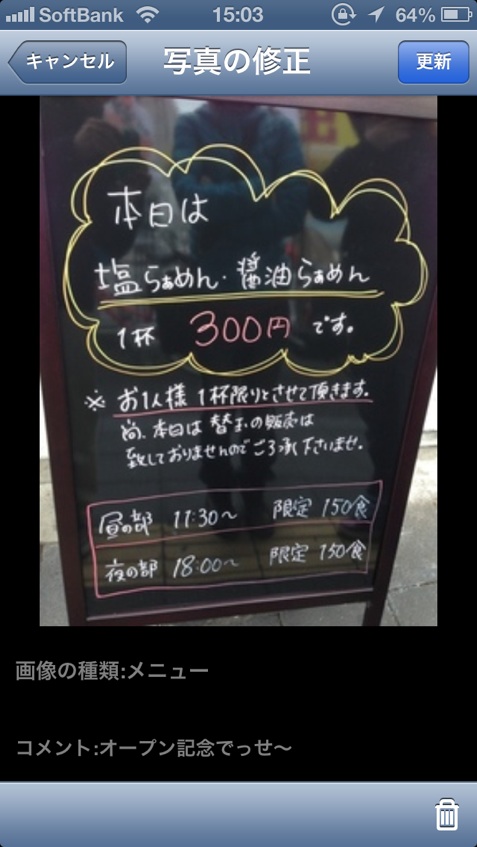 SoftBank 15:03 64%
キャンセル 写真の修正 更新
本日は
塩らぁめん・醤油らぁめん
1杯 300円 です。
※ お1人様 1杯限りとさせて頂きます。
尚、本日は 替玉の販売は
致しておりませんのでご了承下さいませ。
昼の部 11:30~ 限定 150食
夜の部 18:00~ 限定 150食
画像の種類:メニュー
コメント:オープン記念でっせ〜